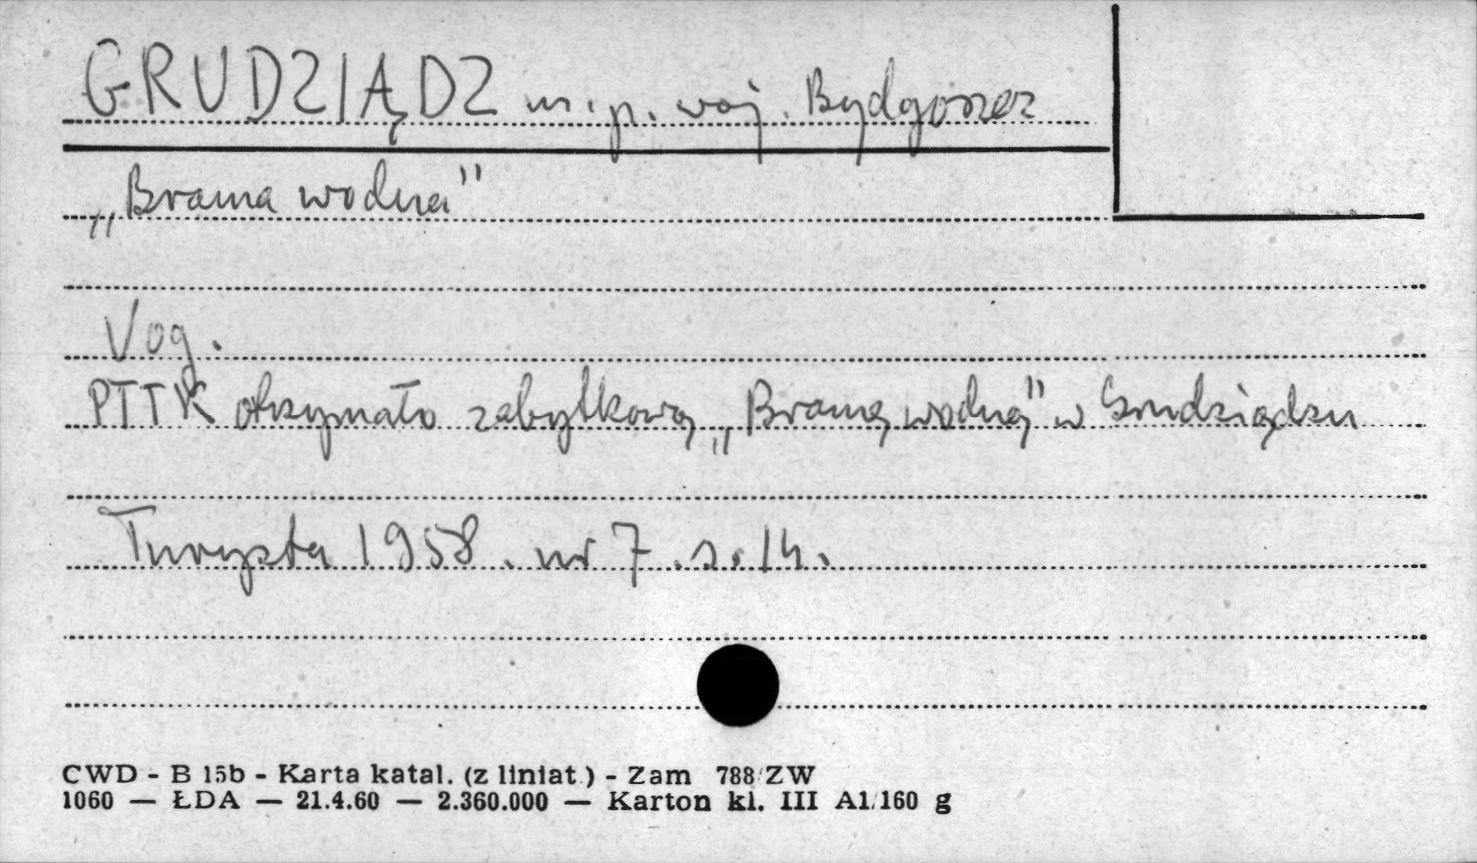 GRUDZIĄDZ m.p. woj. Bydgoszcz
„Brama wodna"
Vog.
PTTK otrzymało zabytkową „Bramę wodną" w Grudziądzu
Turysta 1958. nr 7. s. 14.
CWD - B 15b - Karta katal. (z liniat.) - Zam 788/ZW
1060 — ŁDA — 21.4.60 — 2.360.000 — Karton kl. III A1/160 g